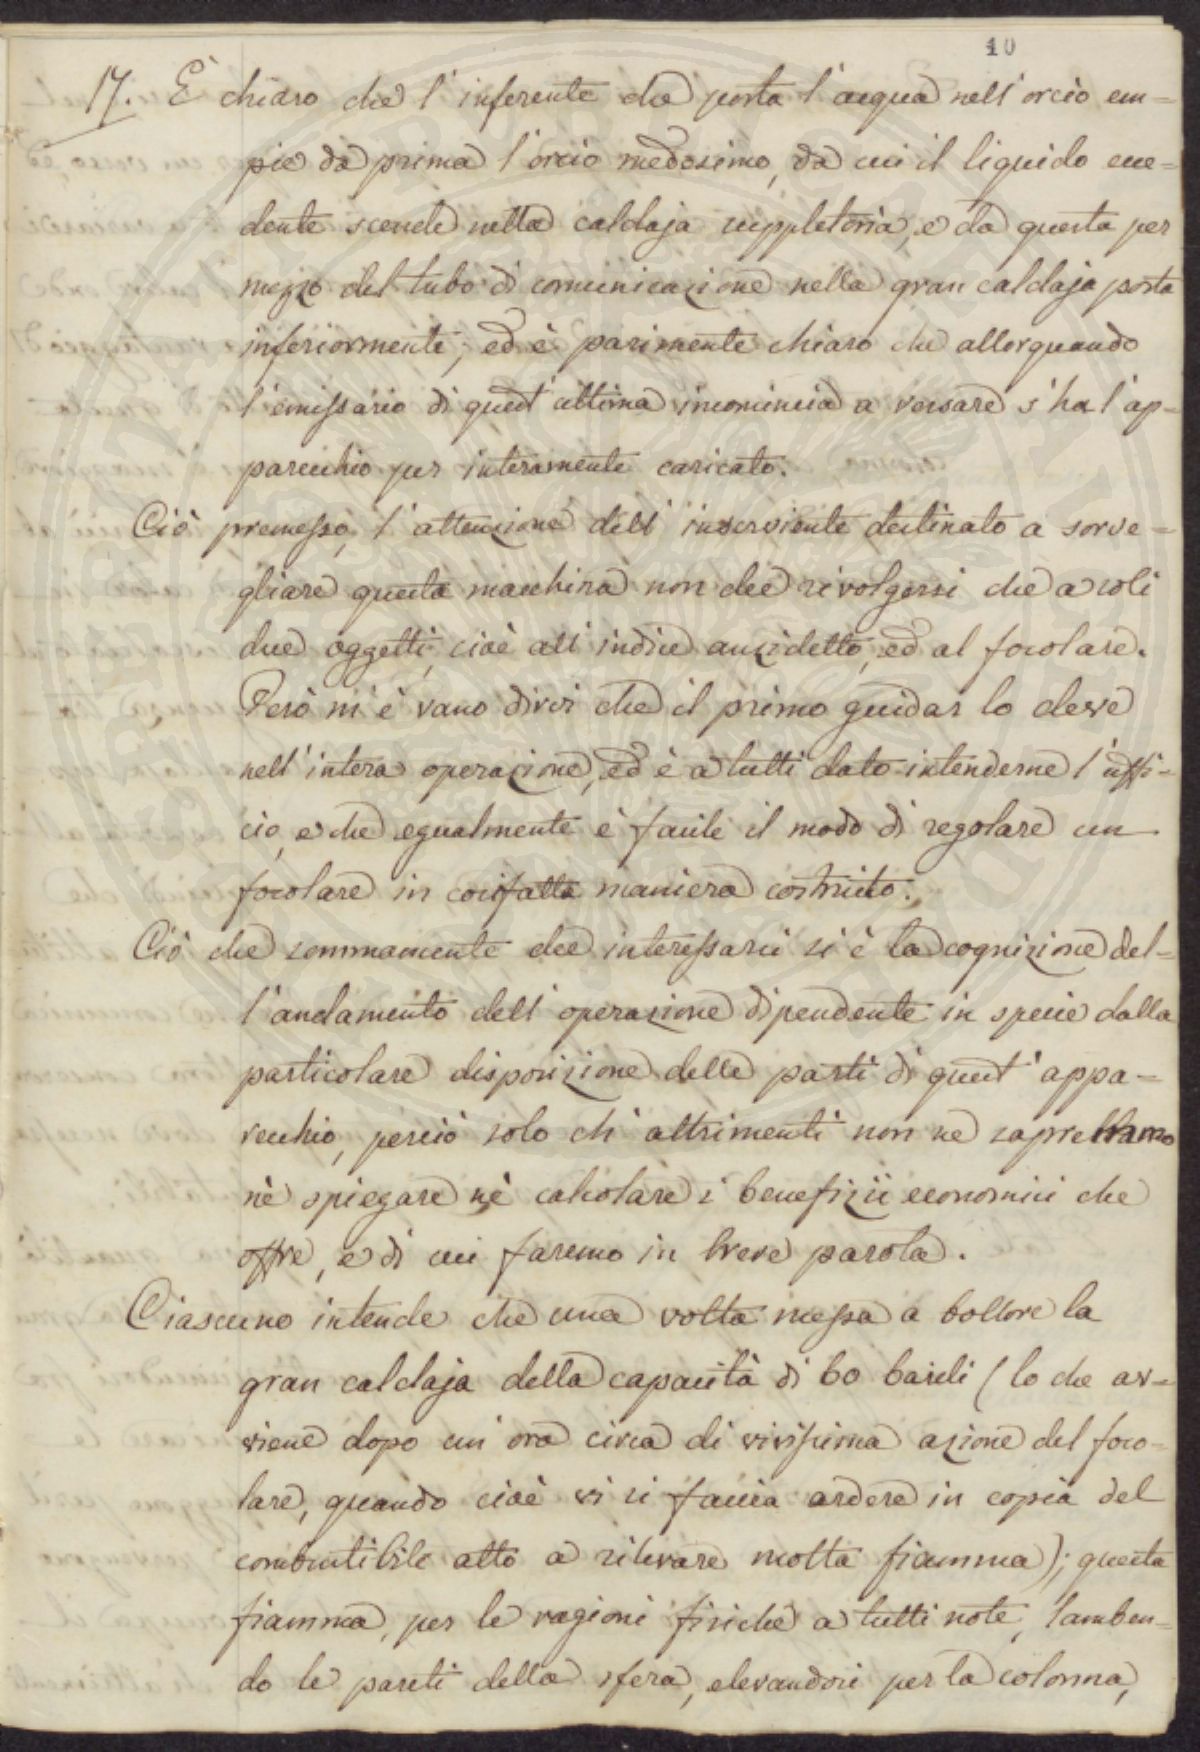 10
17. È chiaro che l'inferente che porta l'acqua nell'orcio em=
pie da prima l'orcio medesimo, da cui il liquido ecce=
dente scende nella caldaja suppletoria, e da questa per
mezzo del tubo di comunicazione nella gran caldaja posta
inferiormente; ed è parimente chiaro che allorquando
l'emissario di quest'ultima incomincia a versare s'ha l'ap=
parecchio per interamente caricato.
Ciò premesso, l'attenzione dell'inserviente destinato a sorve=
gliare questa macchina non dee rivolgersi che a soli
due oggetti, cioè all'indice anzidetto, ed al focolare.
Però ni è vano dirci che il primo guidar lo deve
nell'intera operazione, ed è a tutti dato intenderne l'uffi=
cio, e che egualmente è facile il modo di regolare un
focolare in cosifatta maniera costruito.
Ciò che sommamente dee interessarci si è la cognizione del=
l'andamento dell'operazione dipendente in specie dalla
particolare disposizione delle parti di quest'appa=
recchio, perciò solo ch'altrimenti non ne sapremmo
nè spiegare nè calcolare i benefizii economici che
offre, e di cui faremo in breve parola.
Ciascuno intende che una volta messa a bollore la
gran caldaja della capacità di 60 barili (lo che av=
viene dopo un'ora circa di vivissima azione del foco=
lare, quando cioè vi si faccia ardere in copia del
combustibile atto a rilevare molta fiamma); questa
fiamma, per le ragioni fisiche a tutti note, lamben=
do le pareti della sfera, elevandosi per la colonna,